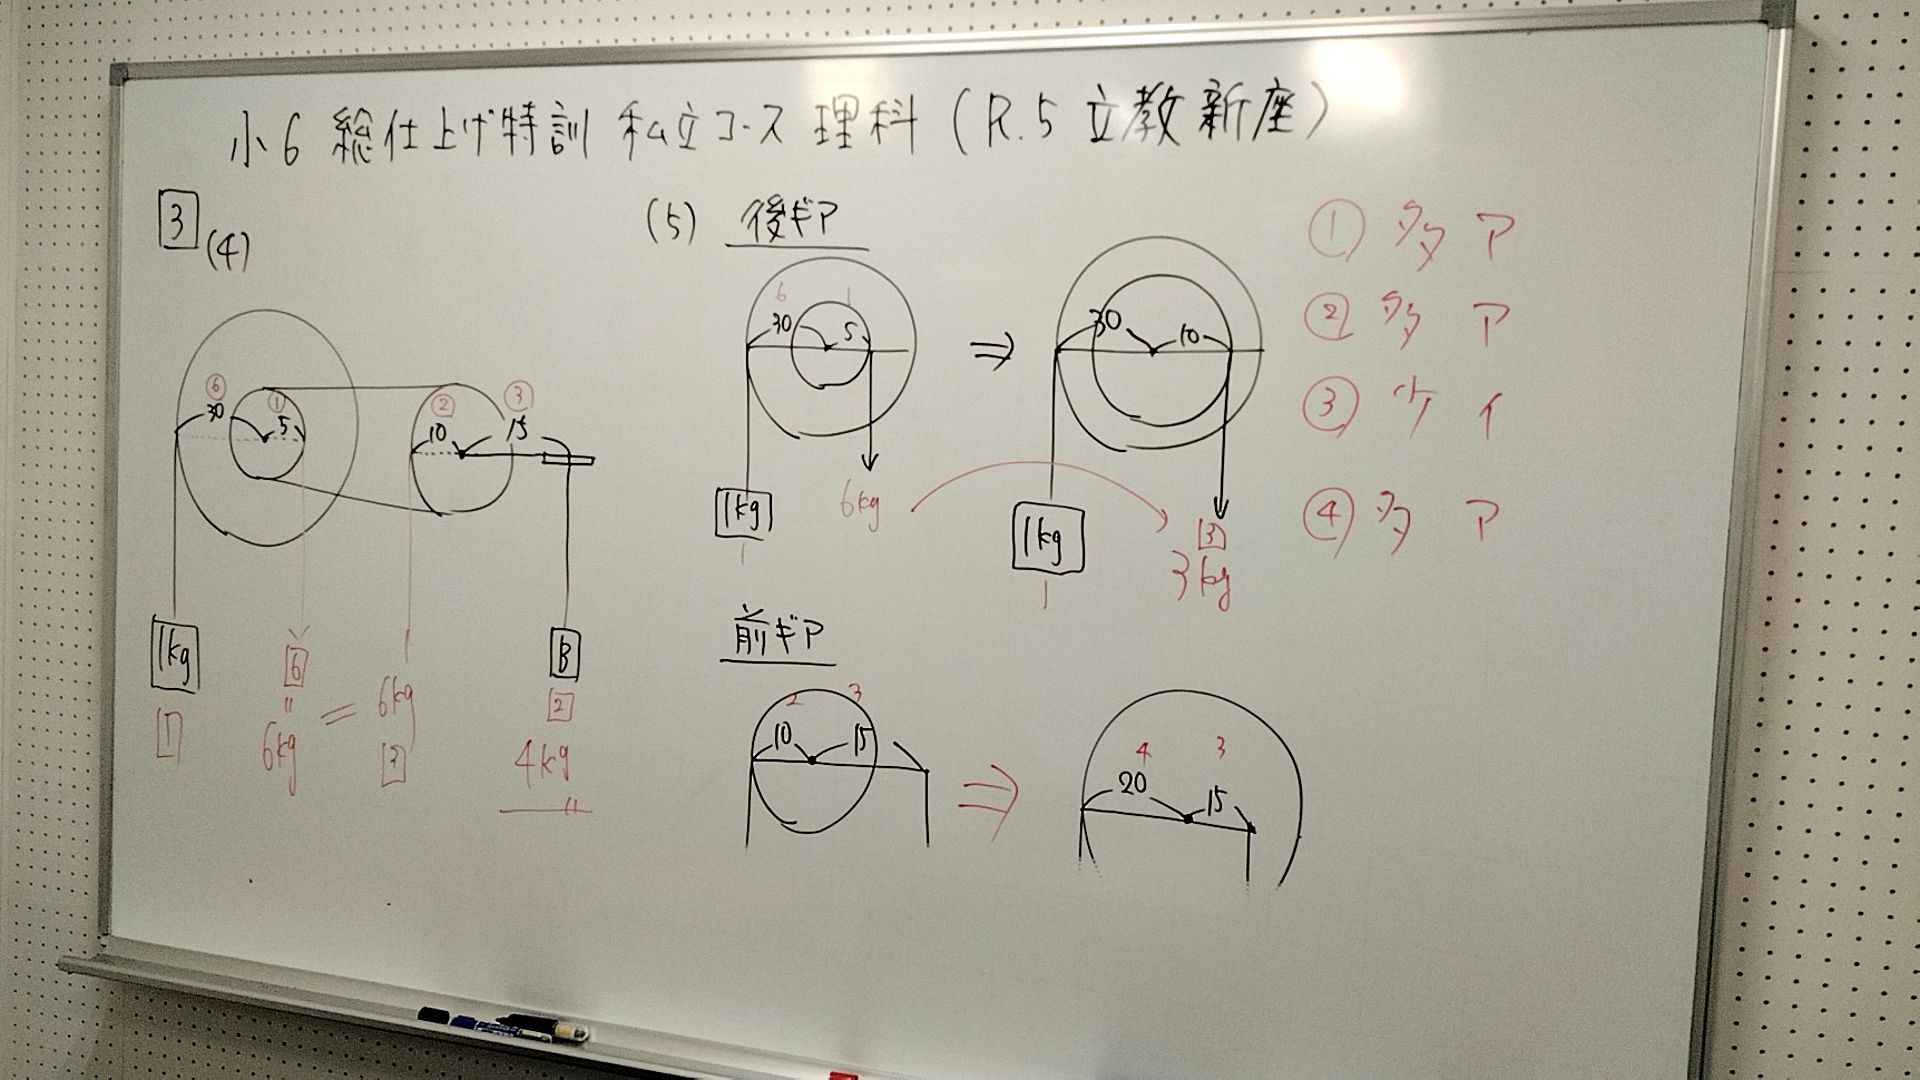 小6 総仕上げ特訓 私立コース 理科 (R.5 立教新座)
3 (4)
⑥ 30
① 5
② 10
③ 15
1kg
1
6
〃
6kg
=
6kg
3
B
2
4kg
(5) 後ギア
6 1
30 5
1kg
1
6kg
⇒
30 10
1kg
1
3
3kg
前ギア
2 3
10 15
⇒
4 3
20 15
① 多 ア
② 多 ア
③ 少 イ
④ 多 ア